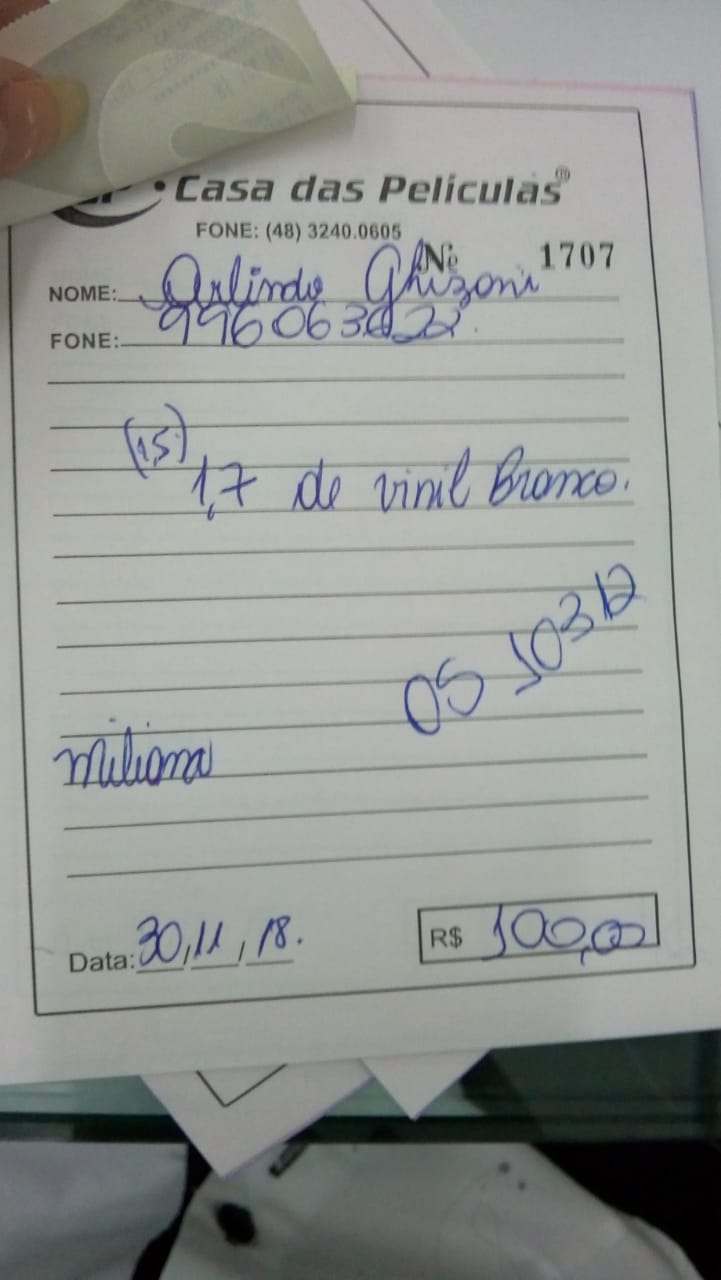 Casa das Películas®
FONE: (48) 3240.0605
Nº 1707
NOME: Orlindo Ghizoni
FONE:
(1,5)
1,7 de vinil Branco.
05 10312
miliana
Data: 30, 11, 18.
R$ 100,00